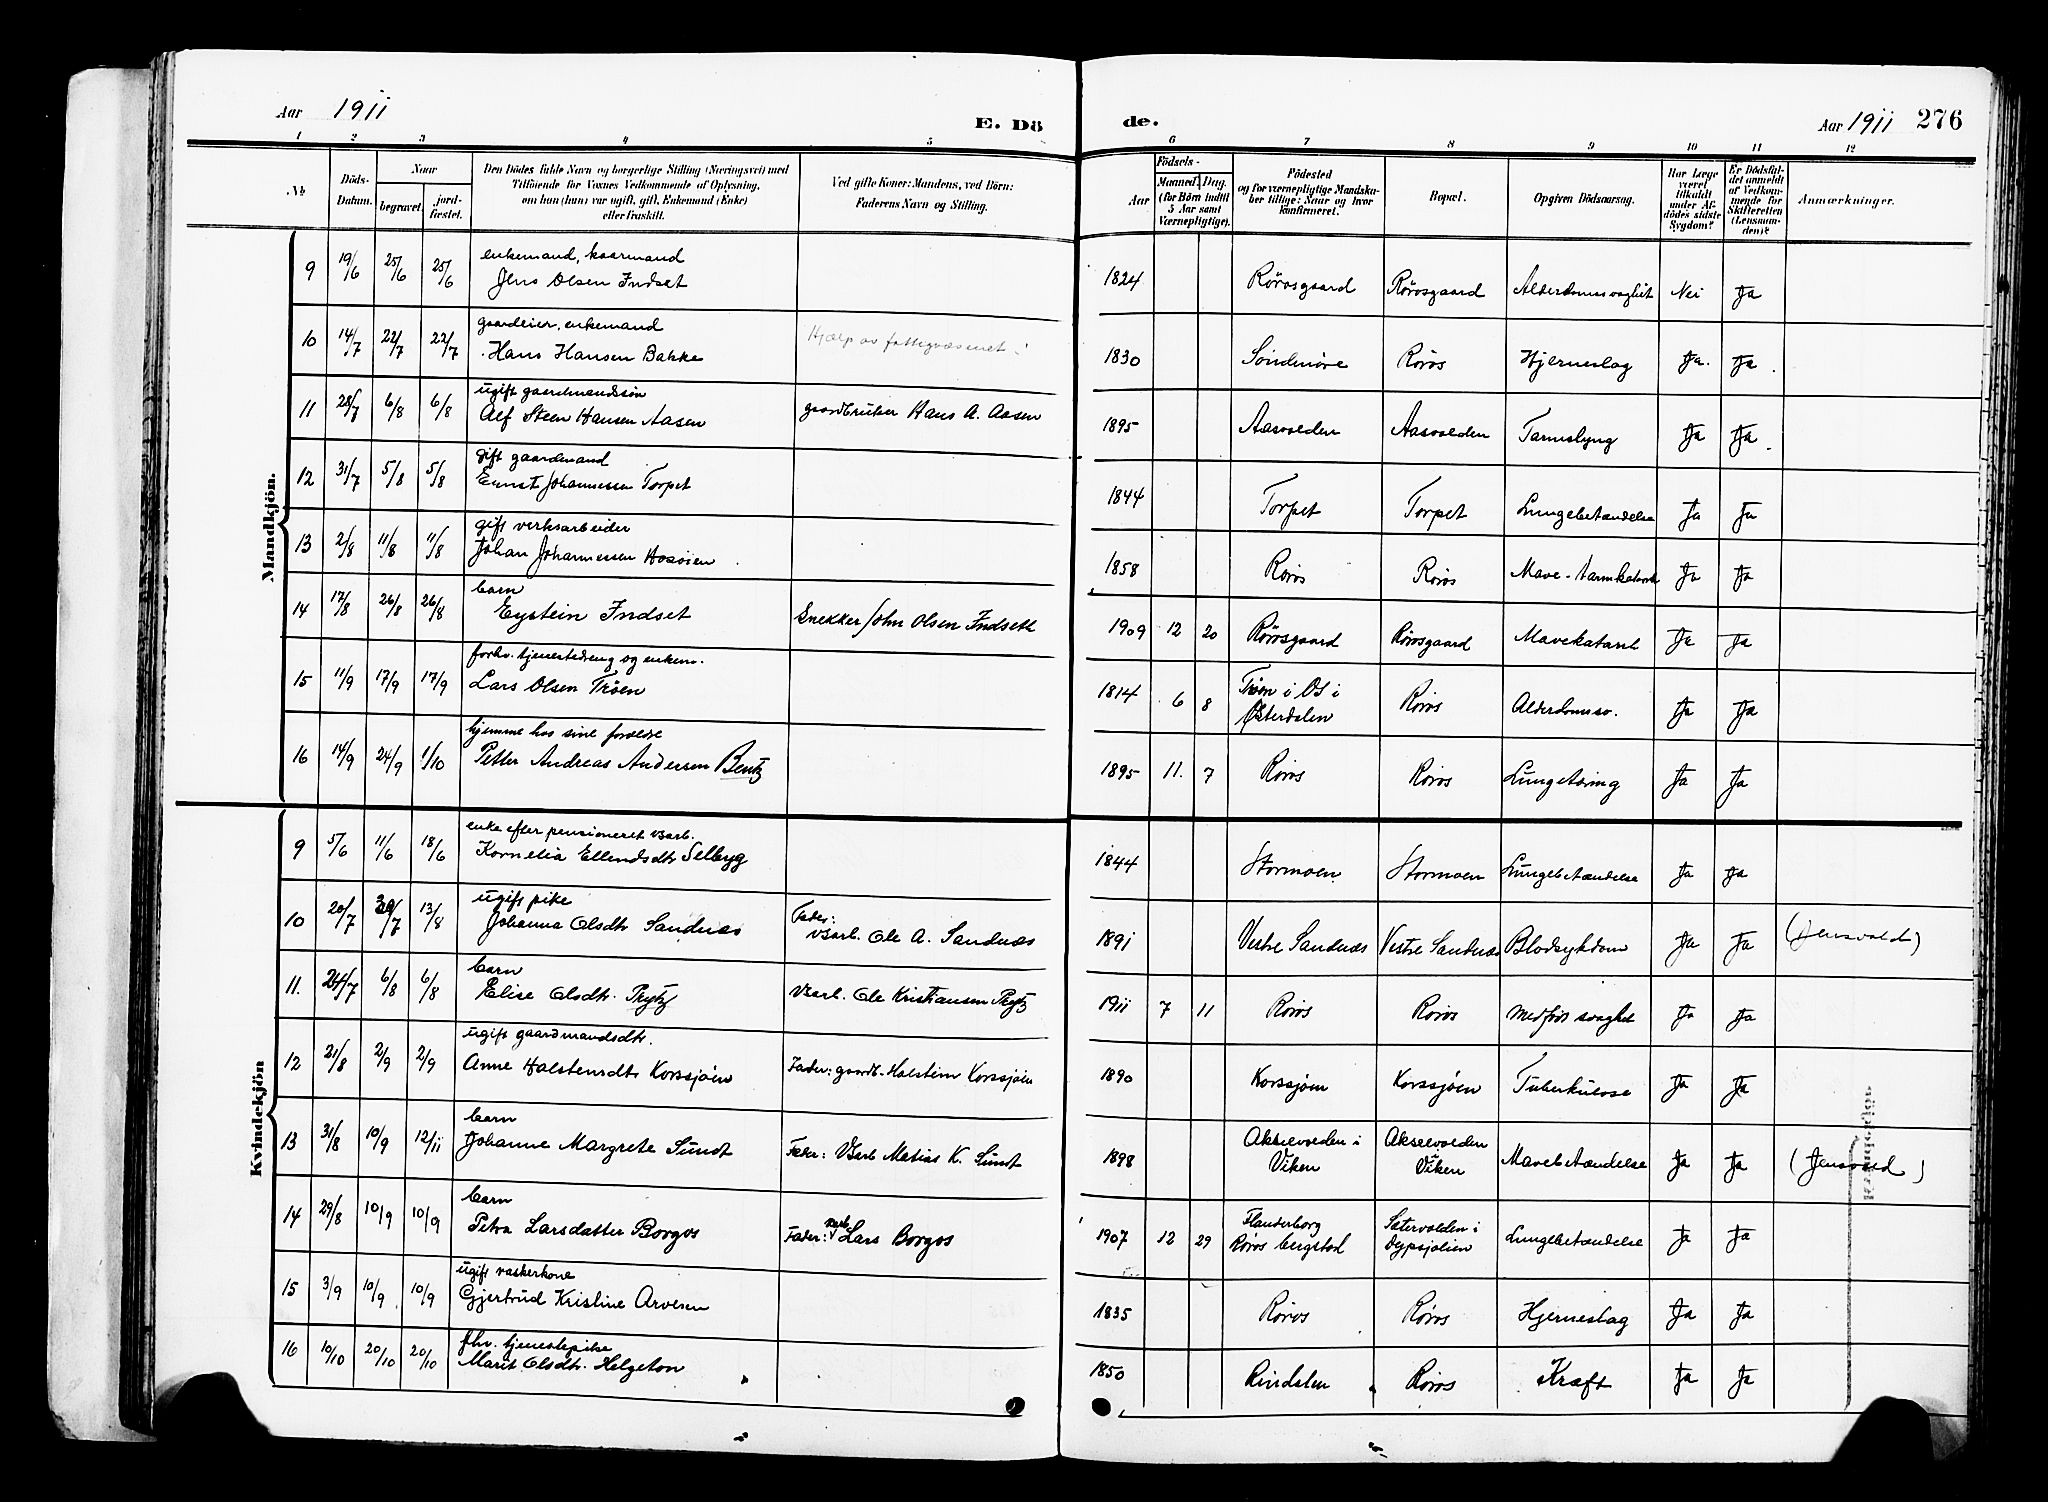 Aar 1911
E. Dö
de.
Aar 1911 276
1 2 3 4 5 6 7 8 9 10 11 12
No
Döds-Datum.
Naar
begravet.
jordfæstet.
Den Dödes fulde Navn og borgerlige Stilling (Næringsvei) med
Tilföiende for Voxnes Vedkommende af Oplysning,
om han (hun) var ugift, gift, Enkemand (Enke)
eller fraskilt.
Ved gifte Koner: Mandens, ved Börn:
Faderens Navn og Stilling.
Födsels-
Aar
Maaned. Dag.
(for Börn indtil
5 Aar samt
Værnepligtige).
Födested
og for værnepligtige Mandska-
ber tillige: Naar og hvor
konfirmeret.
Bopæl.
Opgiven Dödsaarsag.
Har Læge
været
tilkaldt
under Af-
dödes sidste
Sygdom?
Er Dödsfal-
det anmeldt
af Vedkom-
mende for
Skifteretten
(Lensman-
den)?
Anmærkninger.
Mandkjön.
enkemand, kaarmand
9 19/6 25/6 25/6 Jens Olsen Indset 1824 Rörosgaard Rörosgaard Alderdomssvaghet Nei Ja
gaardeier, enkemand
10 14/7 22/7 22/7 Hans Hansen Bakke Hjælp av fattigvæsenet! 1830 Söndmöre Röros Hjerneslag Ja. Ja
ugift gaardmandssön
11 28/7 6/8 6/8 Alf Steen Hansen Aasen gaardbruker Hans A. Aasen 1895 Aasvolden Aasvolden Tarmslyng Ja Ja
gift gaardmand
12 31/7 5/8 5/8 Ernst Johannessen Torpet 1844 Torpet Torpet Lungebetændelse Ja Ja
gift verksarbeider
13 2/8 11/8 11/8 Johan Johannessen Hosöien 1858 Röros Röros Mave-tarmkatarrh Ja Ja
barn
14 17/8 26/8 26/8 Eystein Indset Snekker John Olsen Indseth 1909 12 20 Rörosgaard Rörosgaard Mavekatarrh Ja Ja
forhv. tjenestedreng og enkem.
15 11/9 17/9 17/9 Lars Olsen Tröen 1814 6 8 Tröen i Os i Österdalen Röros Alderdomsv. Ja Ja
hjemme hos sine forældre
16 14/9 24/9 1/10 Petter Andreas Andersen Bentz 1895 11. 7 Röros Röros Lungetæring Ja Ja
Kvindekjön
enke efter pensioneret varb.
9 5/6 11/6 18/6 Kornelia Ellendsdtr Selbyg 1844 Stormoen Stormoen Lungebetændelse Ja Ja
ugift pike
10 20/7 30/7 13/8 Johanna Olsdtr Sandnæs Fader: Varb. Ole A. Sandnæs 1891 Vestre Sandnæs Vestre Sandnæs Blodsykdom Ja Ja (Jensvold)
barn
11. 24/7 6/8 6/8 Elise Olsdtr. Prytz Varb. Ole Kristiansen Prytz 1911 7 11 Röros Röros Medfödt svaghet Ja Ja
ugift gaardmandsdtr.
12 21/8 2/9 2/9 Anne Halstensdtr Korssjöen Fader: gaardb. Halstein Korssjöen 1890 Korssjöen Korssjöen Tuberkulose Ja Ja
barn
13 31/8 10/9 12/11 Johanne Margrete Sundt Fader: Varb Matias K. Sundt 1898 Akselvolden i Viken Akselvolden Viken Mavebetændelse Ja Ja (Jensvold)
barn
14 29/8 10/9 10/9 Petra Larsdatter Borgos Fader: varb. Lars Borgos 1907 12 29 Flanderborg Röros bergstad Sætervolden i Dypsjölien Lungebetændelse Ja Ja
ugift vaskerkone
15 3/9 10/9 10/9 Gjertrud Kristine Arvesen 1835 Röros Röros Hjerneslag Ja Ja
fhv. tjenestepike
16 10/10 20/10 20/10 Marit Olsdtr. Helgeton 1850 Rindalen Röros Kræft Ja Ja